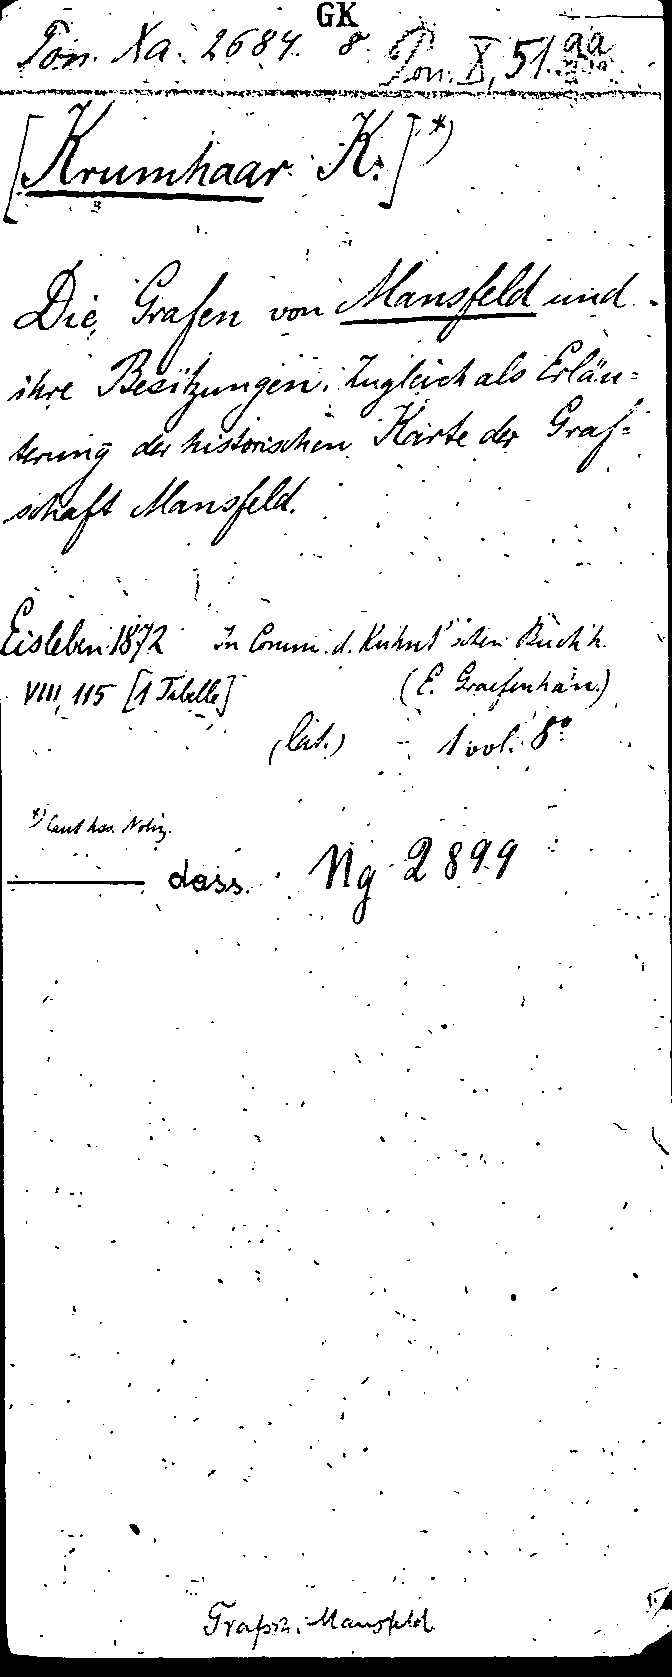 GK
Pon. Xa. 2684. 8. Pon. X, 51. aa
[Krumhaar K.]*)
Die Grafen von Mansfeld und
ihre Besitzungen. Zugleich als Erläu=
terung der historischen Karte der Graf=
schaft Mansfeld.
Eisleben 1872 In Comm. d. Kuhnt'schen Buchh.
VIII, 115 [1 Tabelle] (E. Graefenhan.)
(lat.) 1 vol. 8°
*) laut hss. Notiz.
— dass. Ng 2899
Mansfeld